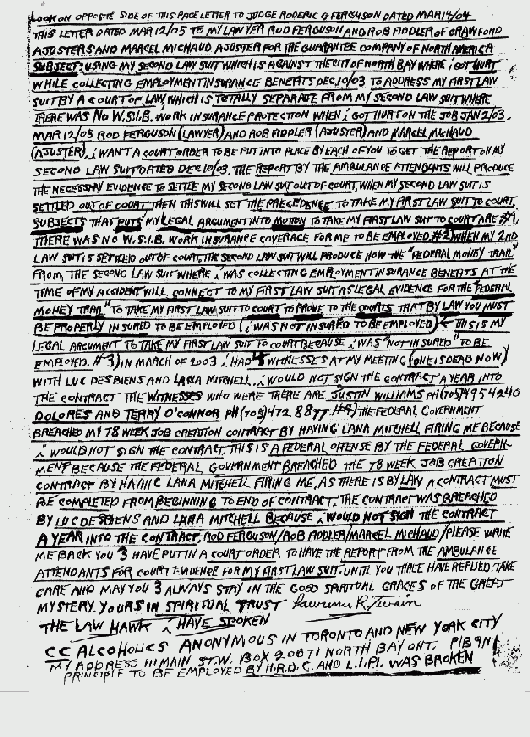 LOOK ON OPPOSITE SIDE OF THIS PAGE LETTER TO JUDGE RODERIC D FERGUSON DATED MAR 14/04
THIS LETTER DATED MAR 12/05 TO MY LAWYER ROD FERGUSON AND ROB FIDDLER OF CRAWFORD
AJOSTERS AND MARCEL MICHAUD AJUSTER FOR THE GUARANTEE COMPANY OF NORTH AMERICA
SUBJECT: USING MY SECOND LAW SUIT WHICH IS AGAINST THE CITY OF NORTH BAY WHERE I GOT HURT
WHILE COLLECTING EMPLOYMENT INSURANCE BENEFITS DEC 10/03 TO ADDRESS MY FIRST LAW
SUIT BY A COURT OF LAW, WHICH IS TOTALLY SEPARATE FROM MY SECOND LAW SUIT WHERE
THERE WAS NO W.S.I.B. WORK INSURANCE PROTECTION WHEN I GOT HURT ON THE JOB JAN 2/03.
MAR 12/05 ROD FERGUSON (LAWYER) AND ROB FIDDLER (AJUSTER) AND MARCEL MICHAUD
(AJUSTER), I WANT A COURT ORDER TO BE PUT INTO PLACE BY EACH OF YOU TO GET THE REPORT ON MY
SECOND LAW SUIT DATED DEC 10/03. THE REPORT BY THE AMBULANCE ATTENDANTS WILL PRODUCE
THE NECESSARY EVIDENCE TO SETTLE MY SECOND LAW SUT OUT OF COURT, WHEN MY SECOND LAW SUT IS
SETTLED OUT OF COURT, THEN THIS WILL SET THE PRECEDENCE TO TAKE MY FIRST LAW SUIT TO COURT.
SUBJECTS THAT PUTS MY LEGAL ARGUMENT INTO MOTION TO TAKE MY FIRST LAW SUT TO COURT ARE #1,
THERE WAS NO W.S.I.B. WORK INSURANCE COVERAGE FOR ME TO BE EMPLOYED. #2) WHEN MY 2ND
LAW SUT IS SETTLED OUT OF COURT THE SECOND LAW SUT WILL PRODUCE HOW THE "FEDERAL MONEY TRAIL"
FROM THE SECOND LAW SUIT WHERE I WAS COLLECTING EMPLOYMENT INSURANCE BENEFITS AT THE
TIME OF MY ACCIDENT WILL CONNECT TO MY FIRST LAW SUT AS LEGAL EVIDENCE FOR THE "FEDERAL
MONEY TRAIL" TO TAKE MY FIRST LAW SUIT TO COURT TO PROVE TO THE COURTS THAT BY LAW YOU MUST
BE PROPERLY INSURED TO BE EMPLOYED (I WAS NOT INSURED TO BE EMPLOYED) THIS IS MY
LEGAL ARGUMENT TO TAKE MY FIRST LAW SUIT TO COURT BECAUSE I WAS "NOT INSURED" TO BE
EMPLOYED. #3) IN MARCH OF 2003 I HAD WITNESSES AT MY MEETING (ONE IS DEAD NOW)
WITH LUC DESBIENS AND LANA MITCHELL. I WOULD NOT SIGN THE CONTRACT A YEAR INTO
THE CONTRACT THE WITNESSES WHO WERE THERE ARE JUSTIN WILLIAMS PH (705) 495 4240
DOLORES AND TERRY O'CONNOR PH (705) 472 8877. #4) THE FEDERAL GOVERNMENT
BREACHED MY 78 WEEK JOB CREATION CONTRACT BY HAVING LANA MITCHELL FIRING ME BECAUSE
I WOULD NOT SIGN THE CONTRACT, THIS IS A FEDERAL OFFENSE BY THE FEDERAL GOVERN-
MENT BECAUSE THE FEDERAL GOVERNMENT BREACHED THE 78 WEEK JOB CREATION
CONTRACT BY HAVING LANA MITCHELL FIRING ME, AS THERE IS BY LAW A CONTRACT MUST
BE COMPLETED FROM BEGINNING TO END OF CONTRACT, THE CONTRACT WAS BREACHED
BY LUC DESBIENS AND LANA MITCHELL BECAUSE I WOULD NOT SIGN THE CONTRACT
A YEAR INTO THE CONTRACT, ROD FERGUSON/ROB FIDDLER/MARCEL MICHAUD/PLEASE WRITE
ME BACK YOU 3 HAVE PUT IN A COURT ORDER TO HAVE THE REPORT FROM THE AMBULANCE
ATTENDANTS FOR COURT EVIDENCE FOR MY FIRST LAW SUIT. UNTIL YOU 3 HAVE REPLIED TAKE
CARE AND MAY YOU 3 ALWAYS STAY IN THE GOOD SPIRITUAL GRACES OF THE GREAT
MYSTERY. YOURS IN SPIRITUAL TRUST Lawrence K. Swain
THE LAW HAWK HAVE SPOKEN
CC ALCOHOLICS ANONYMOUS IN TORONTO AND NEW YORK CITY
MY ADDRESS 111 MAIN ST. W. BOX 20071 NORTH BAY ONT. P1B 9N1
PRINCIPLE TO BE EMPLOYED BY H.R.D.C. AND L.I.P.I. WAS BROKEN